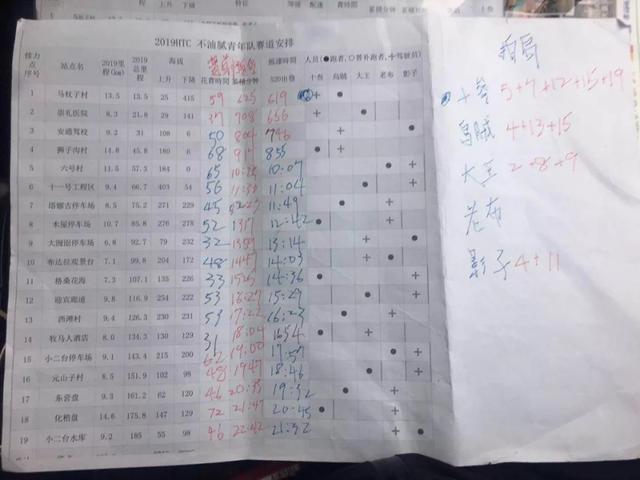 2019HTC 不油腻青年队赛道安排
接力点序号 站点名称 2019里程(km) 2019总里程 海拔 上升 下降 花费时间 抵达时间 人员(●跑者,○替补跑者,+驾驶员) 十叁 乌贼 大王 老布 影子
1 马枝子村 13.5 13.5 25 415 59 625 619
2 崇礼医院 8.3 21.8 29 141 37 708 656 +
3 安通驾校 9.2 31 108 6 50 804 746
4 狮子沟村 14.8 45.8 180 6 68 917 855 +
5 六号村 11.5 57.3 184 0 65 10:07
6 十一号工程区 9.4 66.7 403 54 56 11:04
7 塔娜古停车场 8.5 75.2 271 229 45 11:49
8 木屋停车场 10.7 85.8 276 278 52 1317 12:42
9 大囫囵停车场 6.8 92.7 79 232 32 13:14
10 布达拉观景台 7.1 99.8 204 172 48 14:03
11 格桑花海 7.3 107.1 135 226 33 14:36
12 迎宾廊道 9.8 116.9 254 222 53 15:29
13 西滩村 9.4 126.3 230 231 53 16:23
14 牧马人酒店 8.0 134.3 130 129 31 18:04 1654
15 小二台停车场 9.1 143.4 215 200 62 19:00 17:57
16 元山子村 8.5 151.9 102 98 48 1947 18:46
17 东营盘 9.3 161.2 62 120 46 20:33 19:32
18 化稍盘 14.6 175.8 147 129 72 21:47 20:45
19 小二台水库 9.2 185 55 98 46 22:42 21:32
十叁 5+7+12+15+19
乌贼 4+13+15
大王 2+8+9
老布
影子 4+11